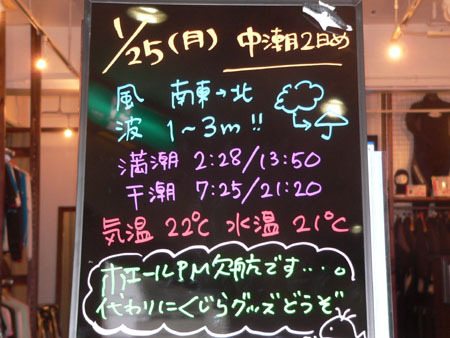 1/25(月) 中潮2日め
風 南東→北
波 1~3m!!
満潮 2:28/13:50
干潮 7:25/21:20
気温 22℃ 水温 21℃
ホエールPM欠航です・・・。
代わりにくじらグッズどうぞ